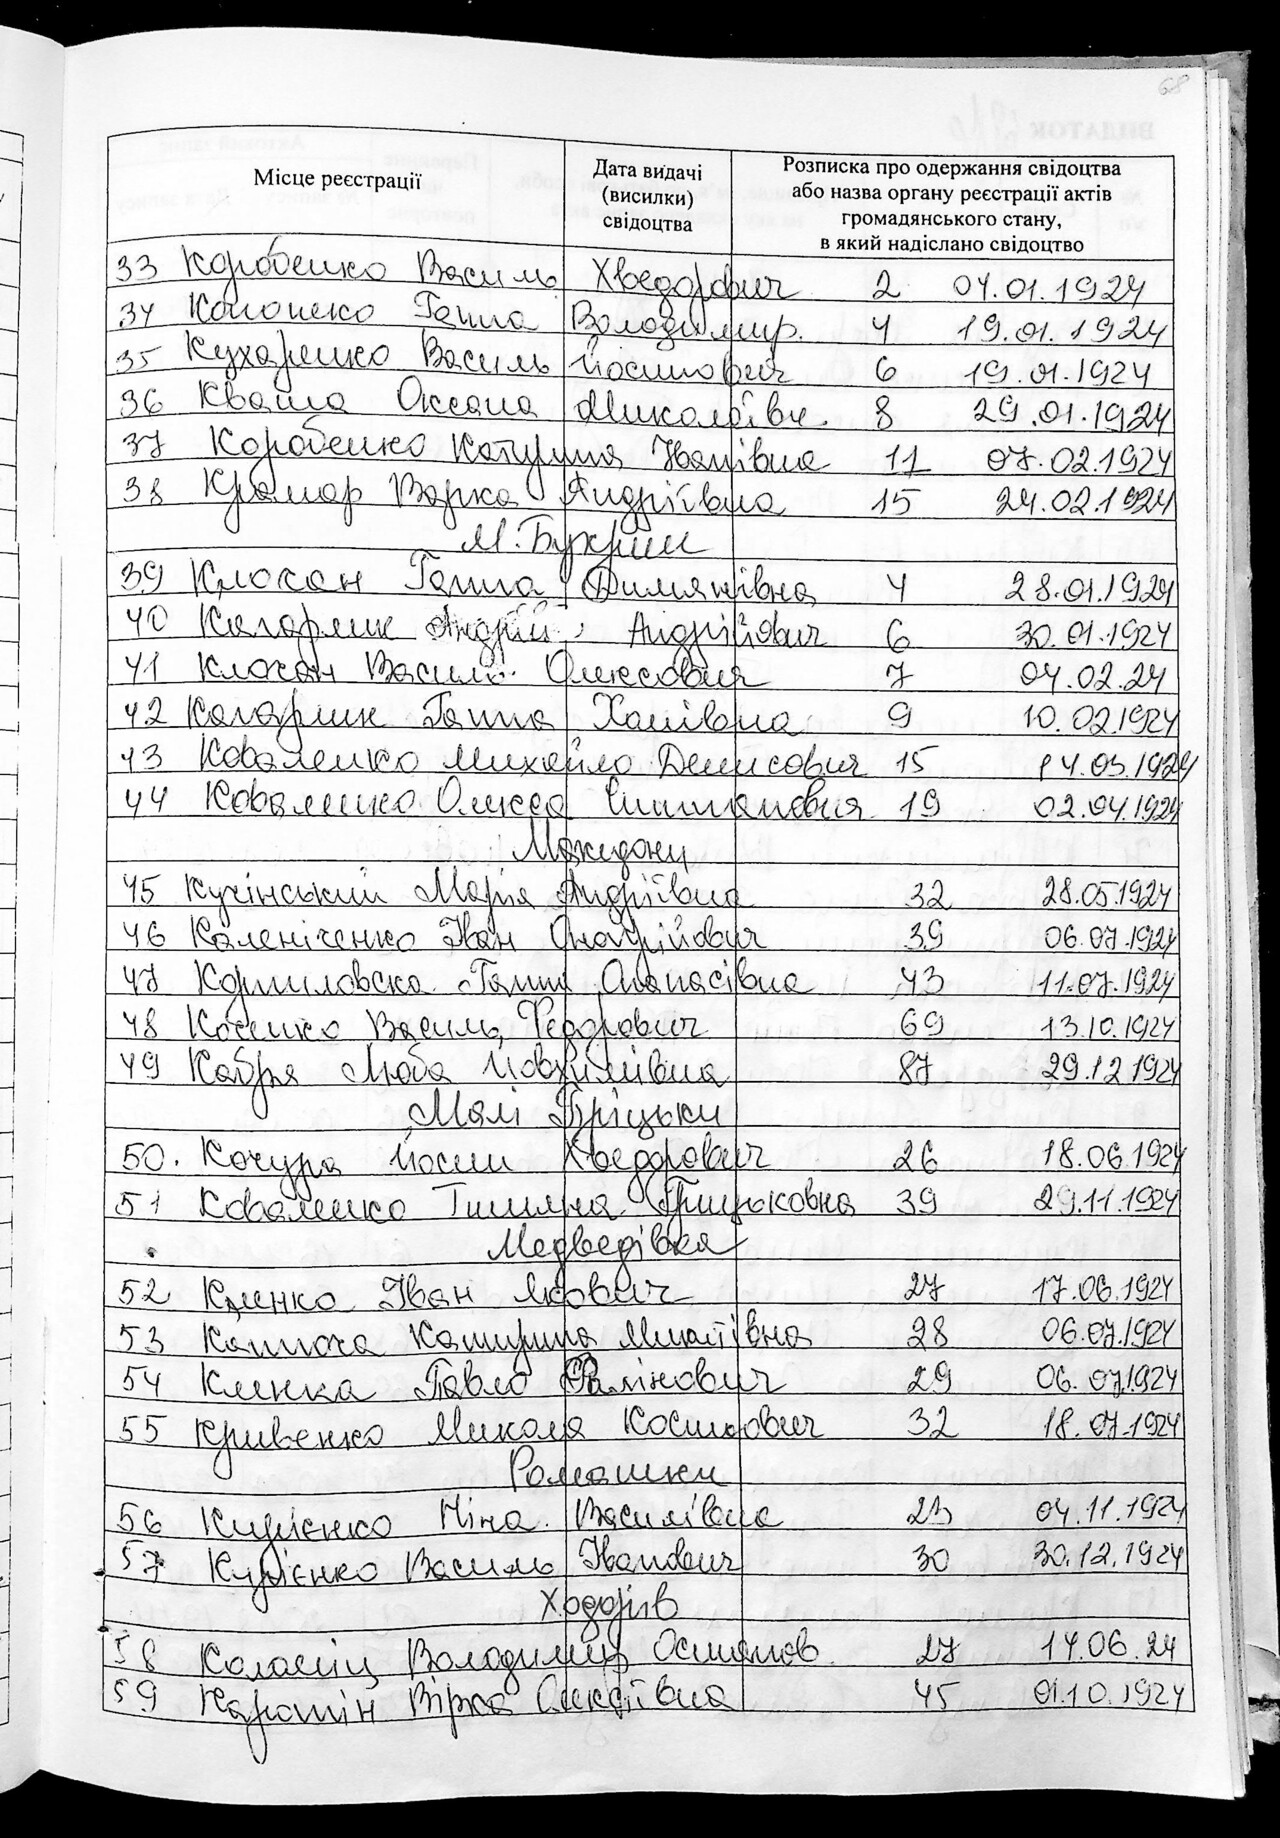 68
Місце реєстрації
Дата видачі
(висилки)
свідоцтва
Розписка про одержання свідоцтва
або назва органу реєстрації актів
громадянського стану,
в який надіслано свідоцтво
33 Коробенко Василь Хведорович 2 04.01.1924
34 Ганна Володимир. 4 19.01.1924
35 Кухаренко Василь Йосипович 6 19.01.1924
36 Кваша Оксана Миколаївн. 8 29.01.1924
37 Коробенко Катурина Іванівна 11 07.02.1924
38 Крамар Варка Андріївна 15 24.02.1924
М. Букрин
39 Клочан Ганна Димянівна 4 28.01.1924
40 Кагарлик Андрій Андрійович 6 30.01.1924
41 Клочан Василь Олексович 7 04.02.24
42 Кагарлик Ганна Хомівна 9 10.02.1924
43 Коваленко Михайло Денисович 15 14.03.1924
44 Коваленко Олекса 19 02.04.1924
Македони
45 Кучінський Марія Андріївна 32 28.05.1924
46 Каленіченко Іван 39 06.07.1924
47 Корниловска Ганна Опанасівна 43 11.07.1924
48 Косенко Василь Федорович 69 13.10.1924
49 Кабря Люба 87 29.12.1924
Малі Пріцьки
50. Кочура Йосип Хведорович 26 18.06.1924
51 Коваленко Тиляна Грицьковна 39 29.11.1924
Медведівка
52 Кленко Іван Якович 27 17.06.1924
53 Катурина 28 06.07.1924
54 Кленка Павло 29 06.07.1924
55 Кривенко Микола Косинович 32 18.07.1924
Ромашки
56 Кирієнко Ніна Василівна 23 04.11.1924
57 Кирієнко Василь Іванович 30 30.12.1924
Ходорів
58 Володимир 27 14.06.24
59 Вірка Олексіївна 45 01.10.1924